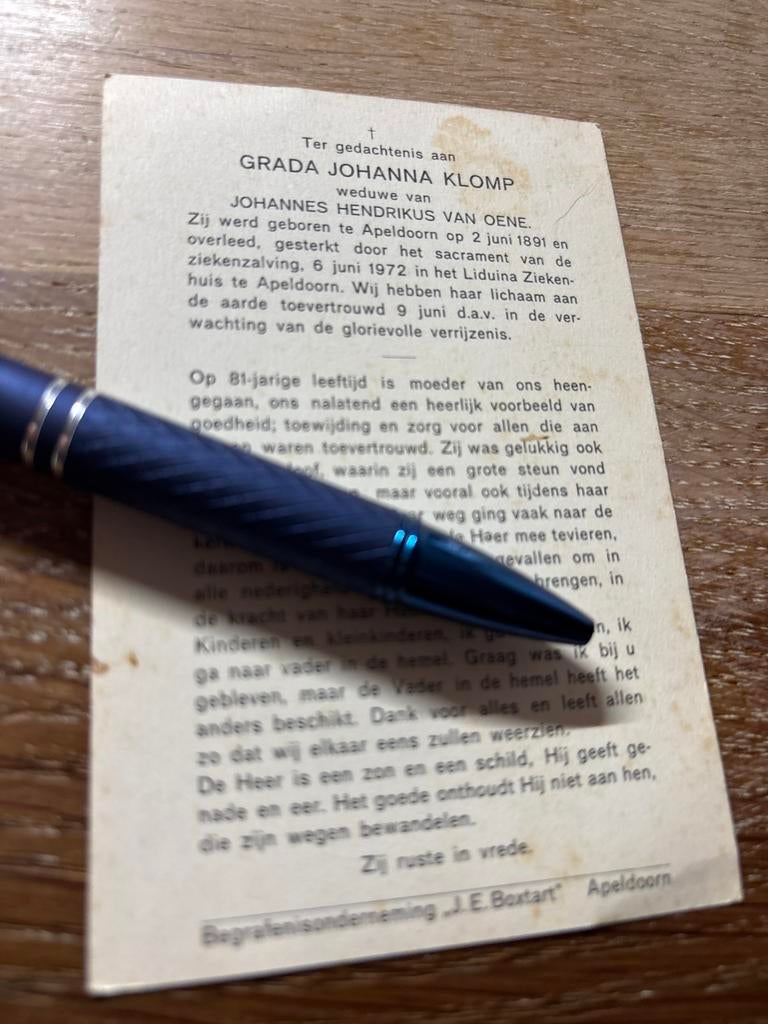 †
Ter gedachtenis aan
GRADA JOHANNA KLOMP
weduwe van
JOHANNES HENDRIKUS VAN OENE.
Zij werd geboren te Apeldoorn op 2 juni 1891 en
overleed, gesterkt door het sacrament van de
ziekenzalving, 6 juni 1972 in het Liduina Zieken-
huis te Apeldoorn. Wij hebben haar lichaam aan
de aarde toevertrouwd 9 juni d.a.v. in de ver-
wachting van de glorievolle verrijzenis.
Op 81-jarige leeftijd is moeder van ons heen-
gegaan, ons nalatend een heerlijk voorbeeld van
goedheid; toewijding en zorg voor allen die aan
waren toevertrouwd. Zij was gelukkig ook
waarin zij een grote steun vond
maar vooral ook tijdens haar
weg ging vaak naar de
Haer mee tevieren,
daarom om in
alle brengen, in
de kracht van haar
Kinderen en kleinkinderen, ik ik
ga naar vader in de hemel. Graag was ik bij u
gebleven, maar de Vader in de hemel heeft het
anders beschikt. Dank voor alles en leeft allen
zo dat wij elkaar eens zullen weerzien.
De Heer is een zon en een schild, Hij geeft ge-
nade en eer. Het goede onthoudt Hij niet aan hen,
die zijn wegen bewandelen.
Zij ruste in vrede.
Begrafenisonderneming „J.E. Boxtart" Apeldoorn